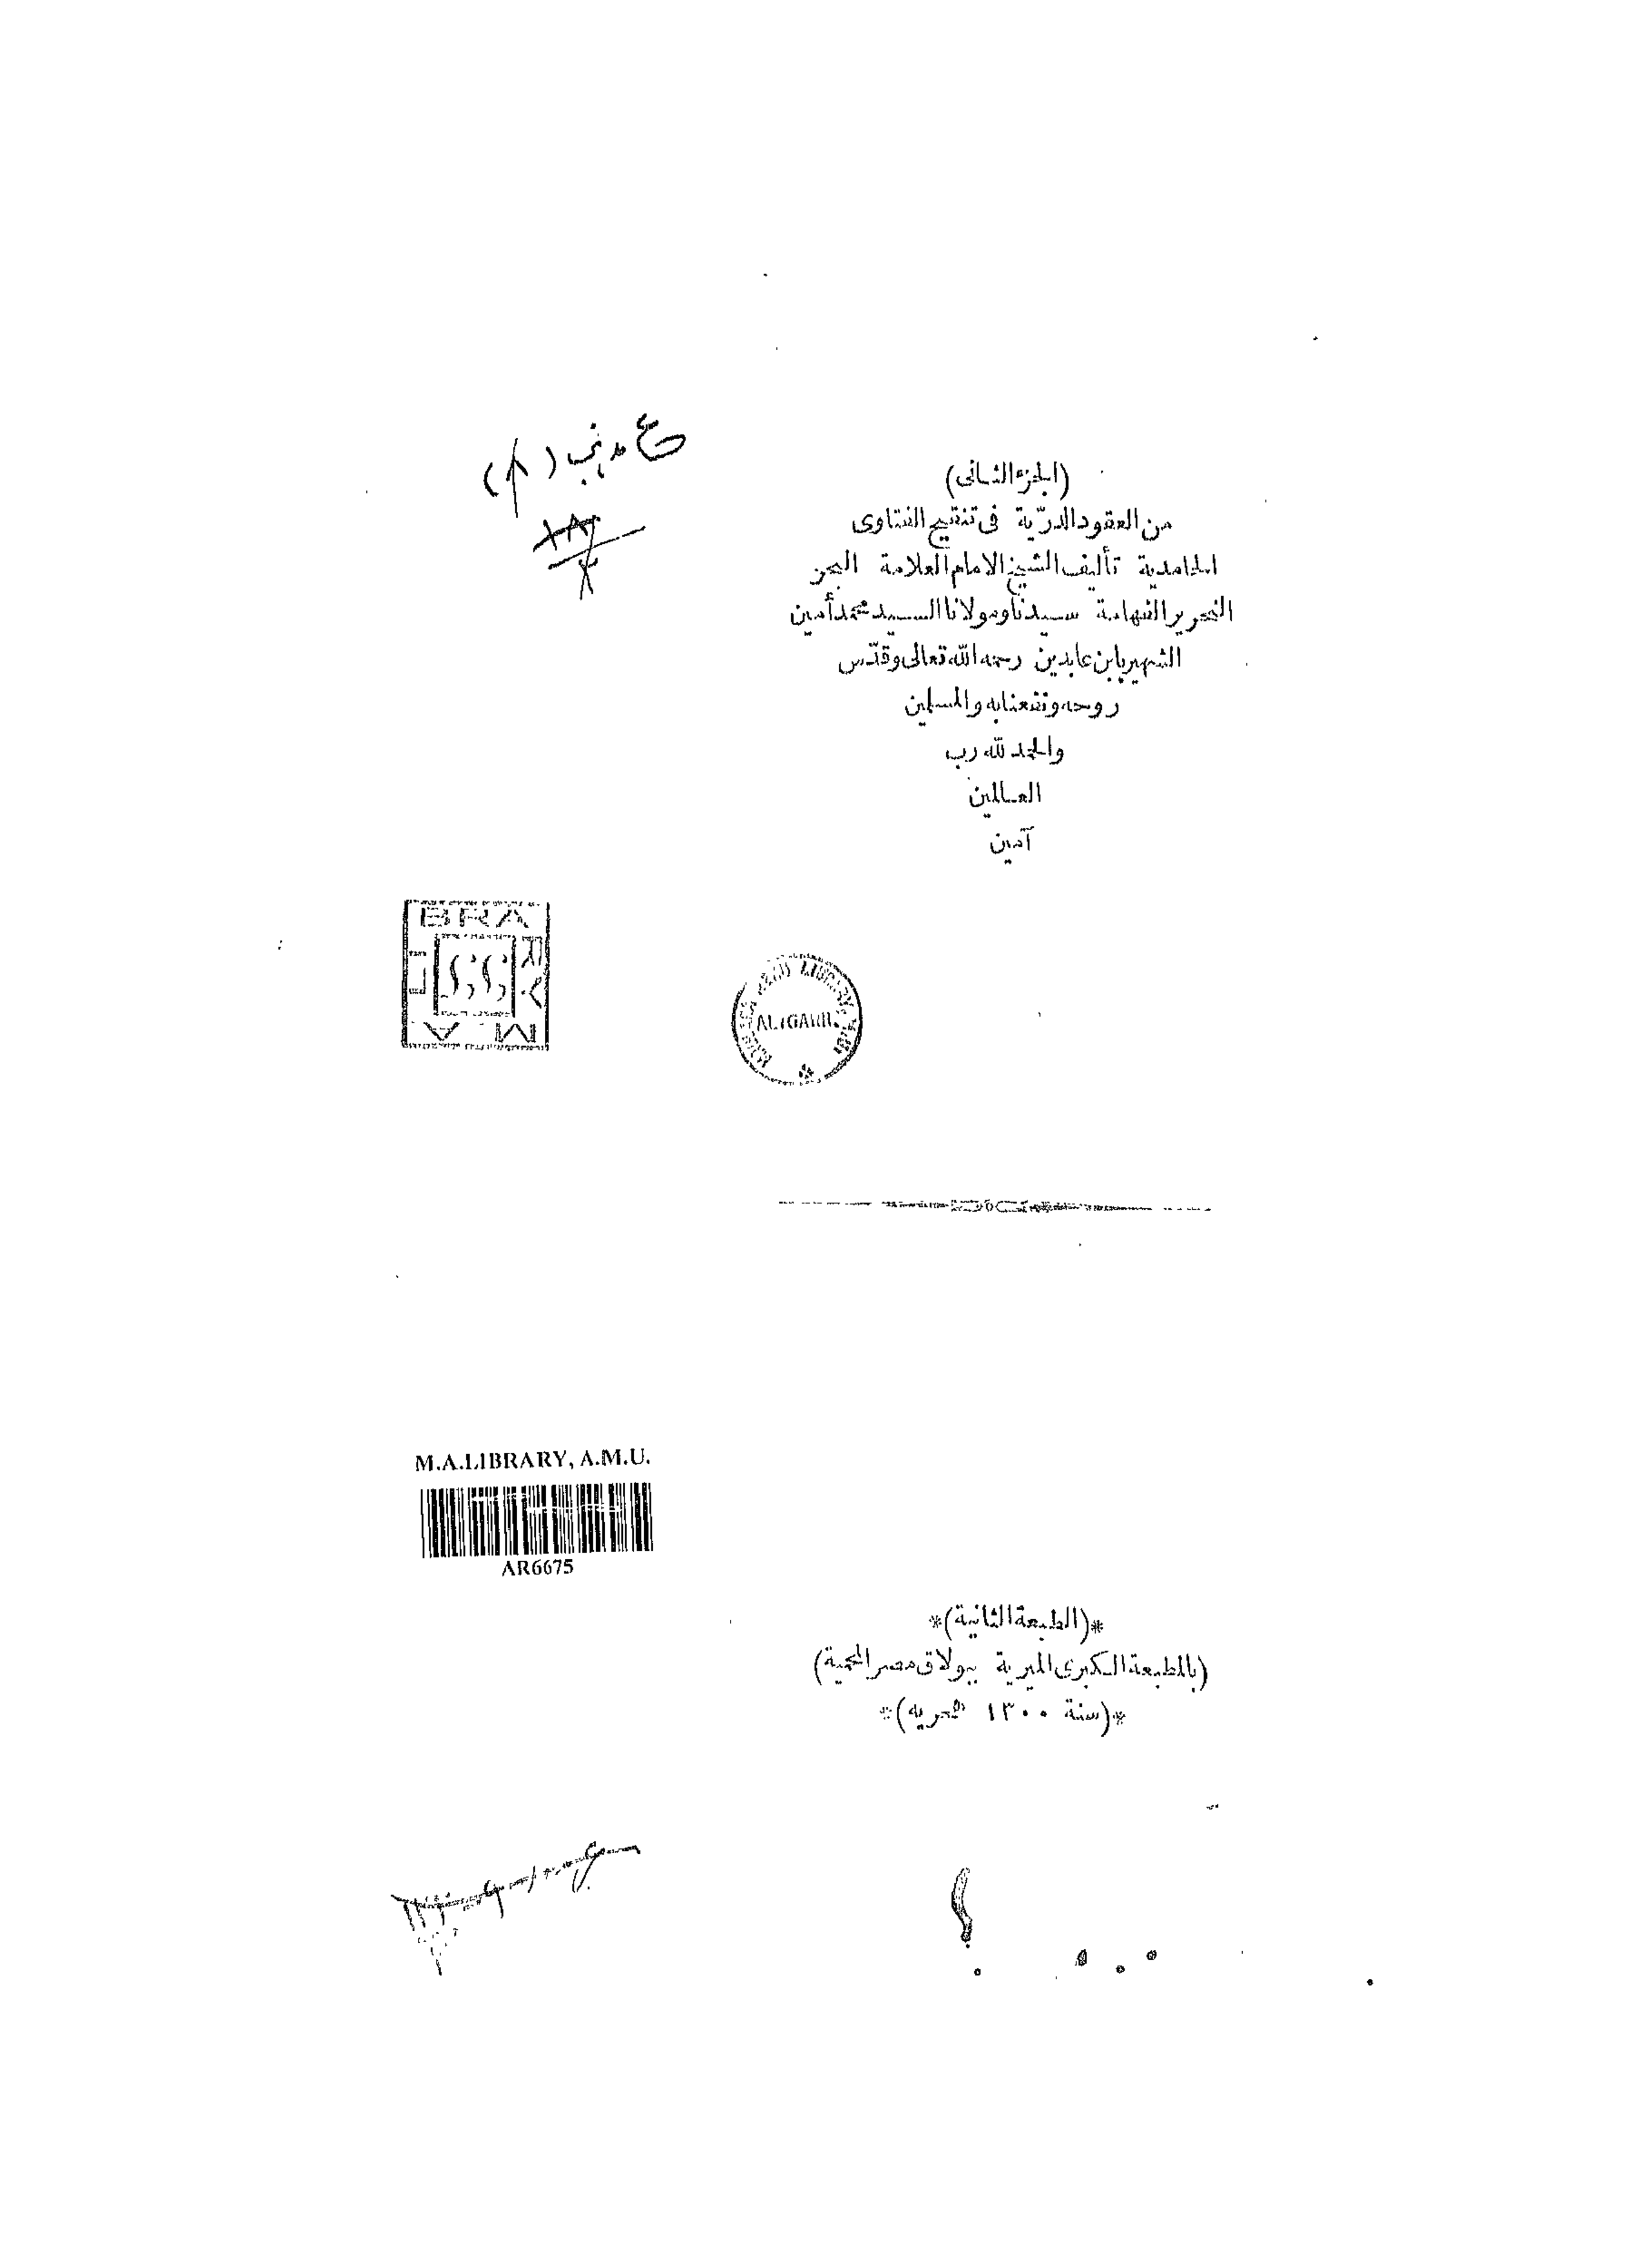 (الجزء الثانى)
من العقود الدرّية فى تنقيح الفتاوى
الحامدية تأليف الشيخ الامام العلامة البحر
النحرير الفهامة سيدنا ومولانا السيد محمد أمين
الشهير بابن عابدين رحمه الله تعالى وقدّس
روحه ونفعنا به والمسلمين
والحمد لله رب
العالمين
آمين
ALIGARH
M.A.LIBRARY, A.M.U.
AR6675
*(الطبعة الثانية)*
(بالمطبعة الكبرى الميرية ببولاق مصر المحمية)
*(سنة ١٣٠٠ هجريه)*